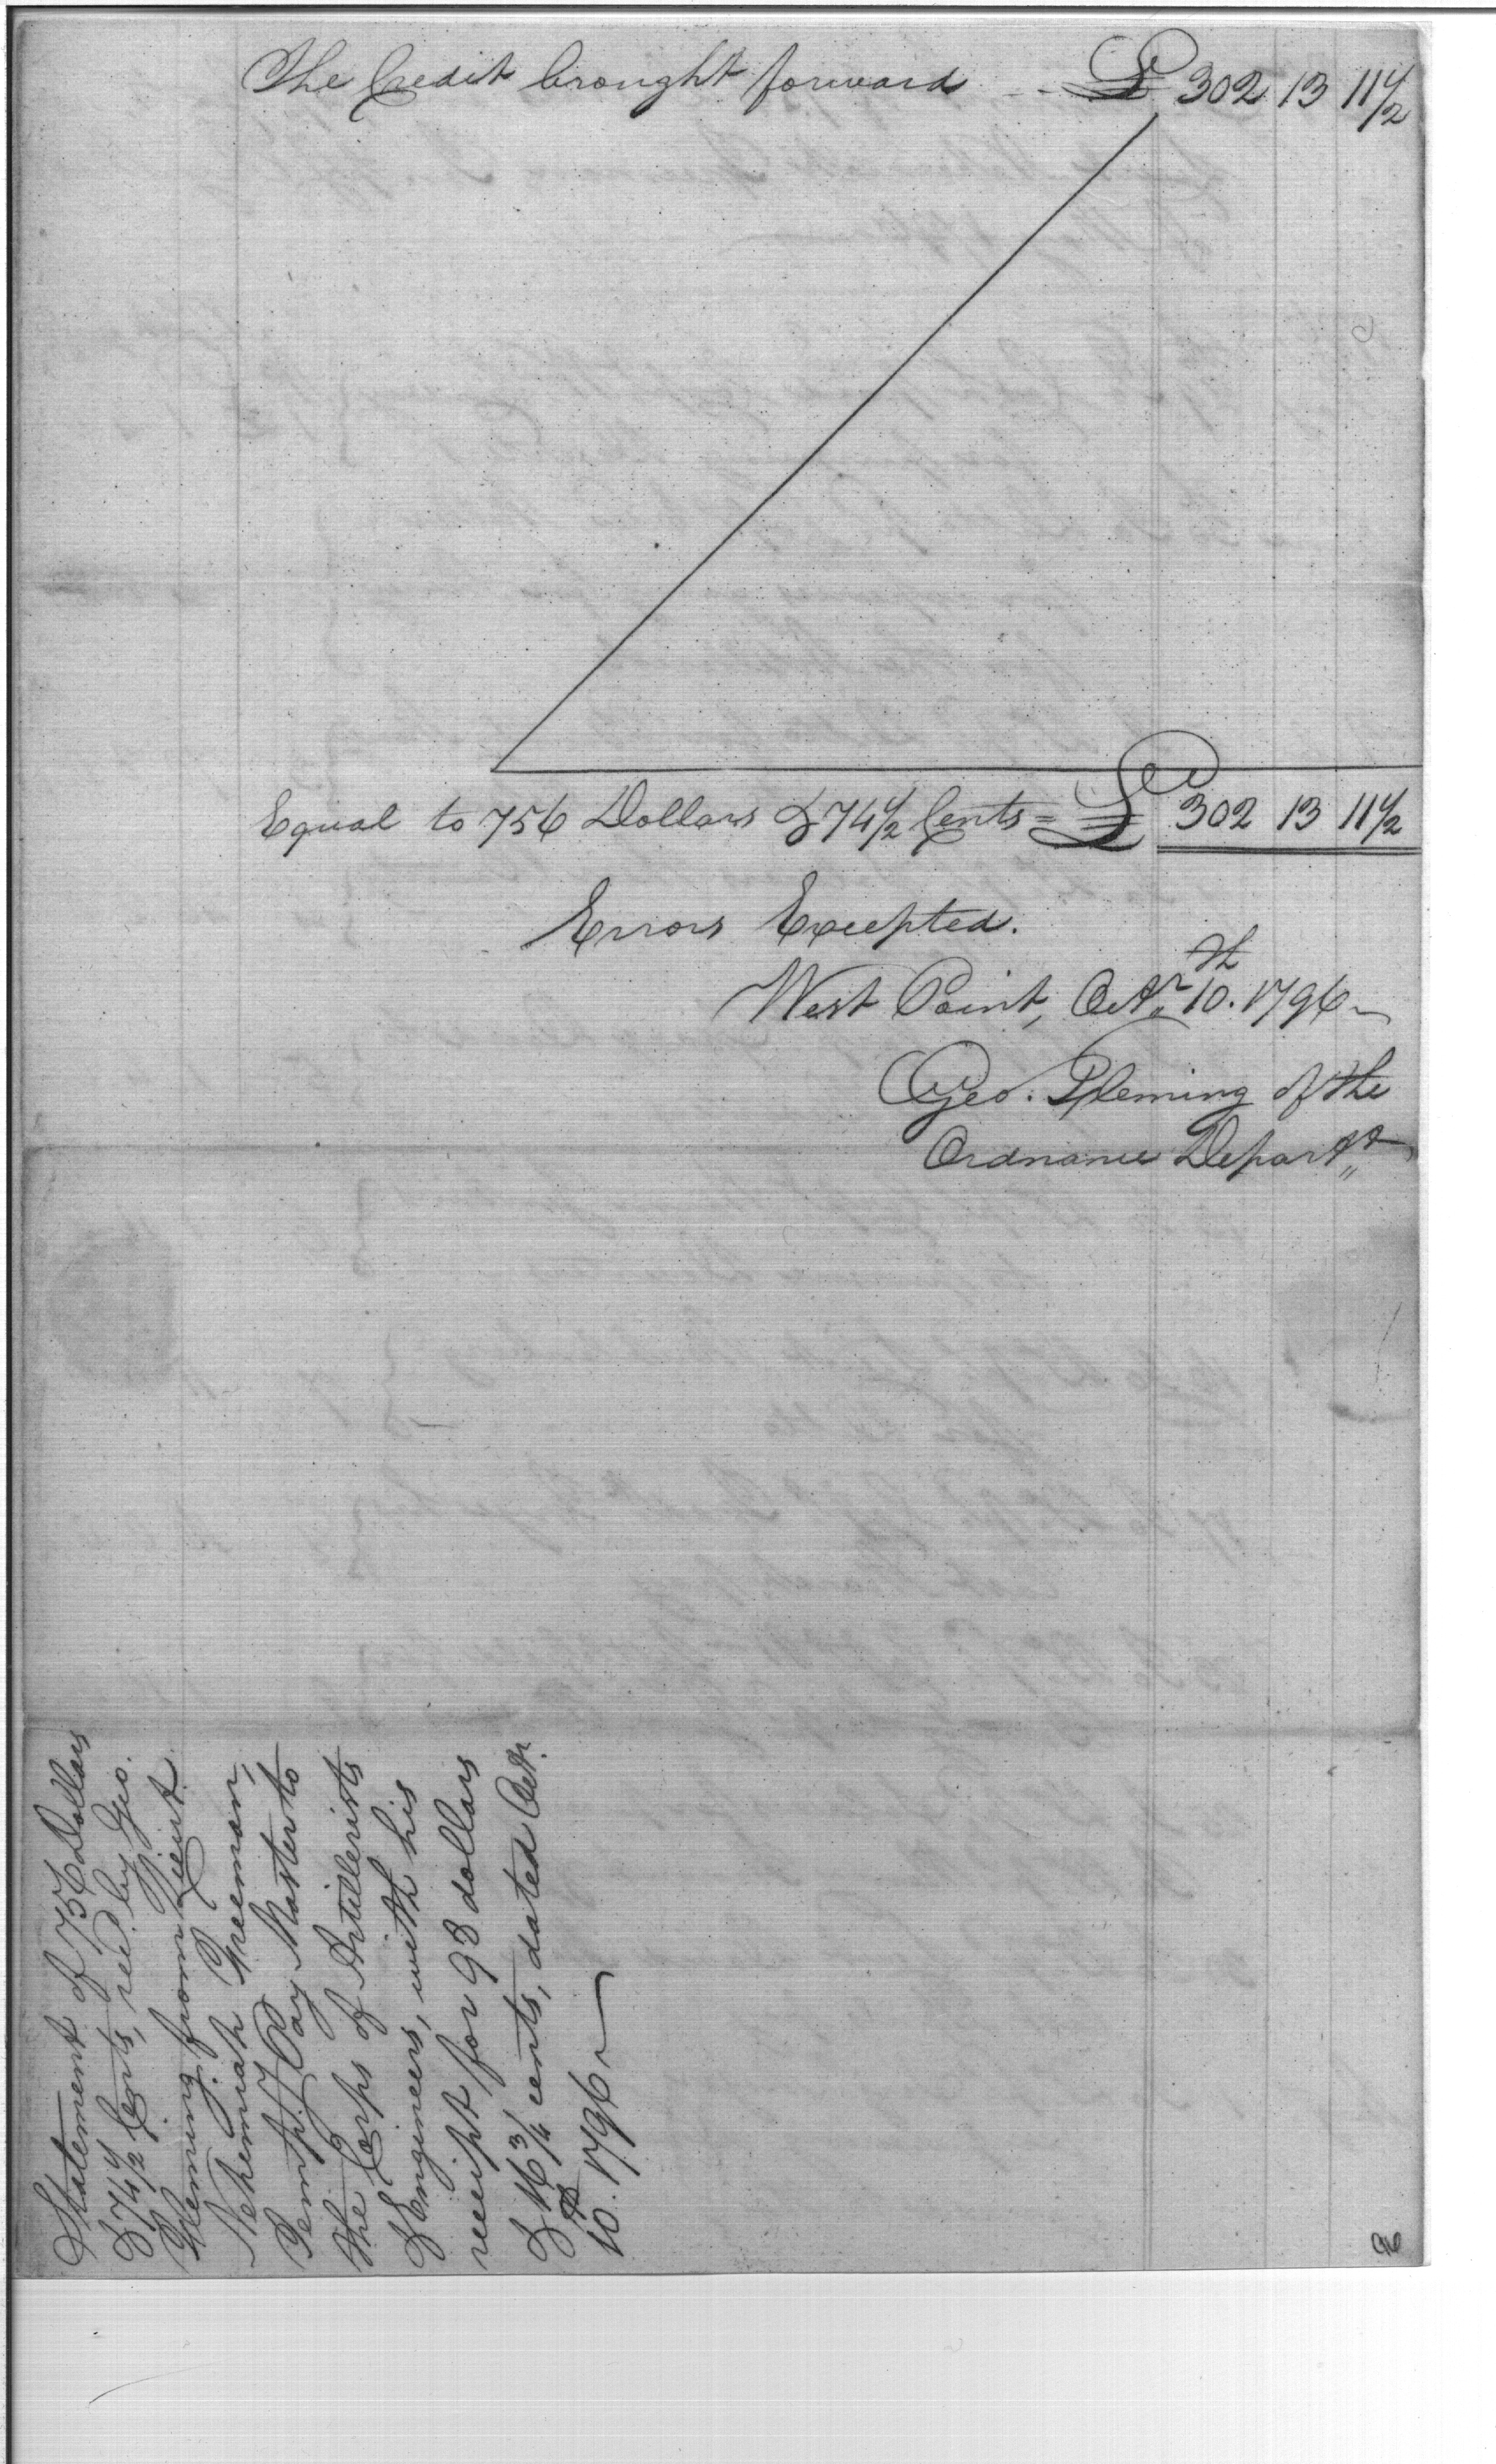 The Credit brought forward - - £ 302 13 11 1/2
Equal to 756 Dollars & 74 1/2 Cents = £ 302 13 11 1/2
Errors Excepted.
West Point, Octr. 10th. 1796
Geo. Fleming of the
Ordnance Departt
Statement of 756 Dollars
& 74 1/2 Cents, recd. by Geo.
Fleming, from Lieut.
Nehemiah Freeman,
Tempy. Pay Master to
the Corps of Artillerists
& Engineers, with his
receipt for 98 dollars
& 16 3/4 cents, dated Octr.
10th. 1796